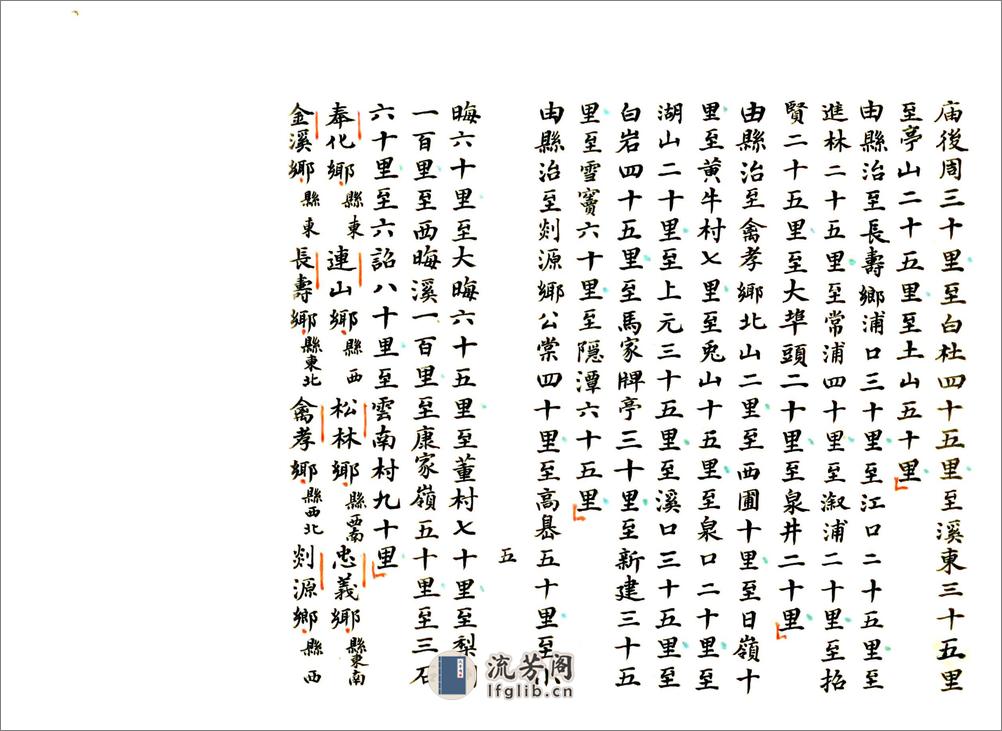 庙後周三十里至白杜四十五里至溪東三十五里
至亭山二十五里至土山五十里
由縣治至長壽鄉浦口三十里至江口二十五里至
進林二十五里至常浦四十里至溆浦二十里至招
賢二十五里至大埠頭二十里至泉井二十里
由縣治至禽孝鄉北山二里至西圃十里至日嶺十
里至黄牛村七里至兎山十五里至泉口二十里至
湖山二十里至上元三十五里至溪口三十五里至
白岩四十五里至馬家牌亭三十里至新建三十五
里至雪竇六十里至隱潭六十五里
由縣治至剡源鄉公棠四十里至高嶴五十里至小
五
晦六十里至大晦六十五里至董村七十里至梨
一百里至西晦溪一百里至康家嶺五十里至三石
六十里至六詔八十里至雲南村九十里
奉化鄉縣東 連山鄉縣西 松林鄉縣西南 忠義鄉縣東南
金溪鄉縣東 長壽鄉縣東北 禽孝鄉縣西北 剡源鄉縣西
流芳阁
lfglib.cn